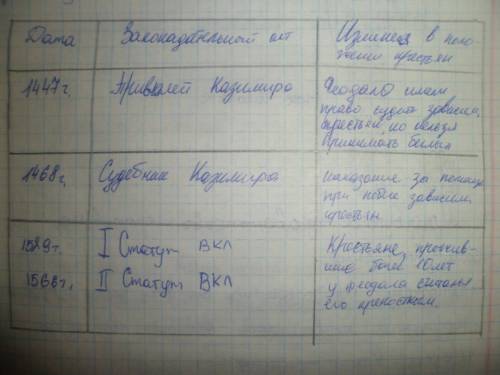 Дата
Законодательный акт
Изменен в поло
жении крестьян
1447г.
Привилей Казимира
Феодало имели
право судить зависим.
крестьян, но нельзя
принимать беглых
1468г.
Судебник Казимира
наказание за помощь
при побеге зависим.
крестьян
1529г.
I Статут ВКЛ
1566г.
II Статут ВКЛ
Крестьяне, прожив-
шие более 10 лет
у феодала считались
его крепостным.